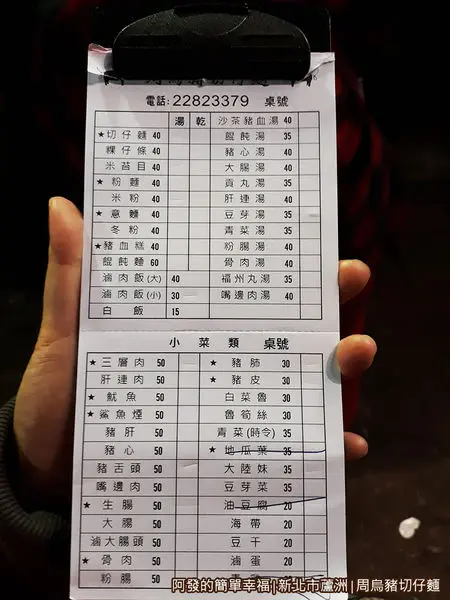 電話:22823379 桌號
湯 乾 沙茶豬血湯 40
★切仔麵 40 餛飩湯 35
粿仔條 40 豬心湯 40
米苔目 40 大腸湯 40
★粉麵 40 貢丸湯 35
米粉 40 肝連湯 40
★意麵 40 豆芽湯 35
冬粉 40 青菜湯 35
★豬血糕 40 粉腸湯 40
餛飩麵 60 骨肉湯 40
滷肉飯(大) 40 福州丸湯 35
滷肉飯(小) 30 嘴邊肉湯 40
白飯 15
小菜類 桌號
★三層肉 50 ★豬肺 30
肝連肉 50 ★豬皮 30
★魷魚 50 白菜魯 30
★鯊魚煙 50 魯筍絲 30
豬肝 50 青菜(時令) 35
豬心 50 ★地瓜葉 35
豬舌頭 50 大陸妹 35
嘴邊肉 50 豆芽菜 35
★生腸 50 油豆腐 20
大腸 50 海帶 20
滷大腸頭 50 豆干 20
★骨肉 50 滷蛋 20
粉腸 50
阿發的簡單幸福|新北市蘆洲|周烏豬切仔麵